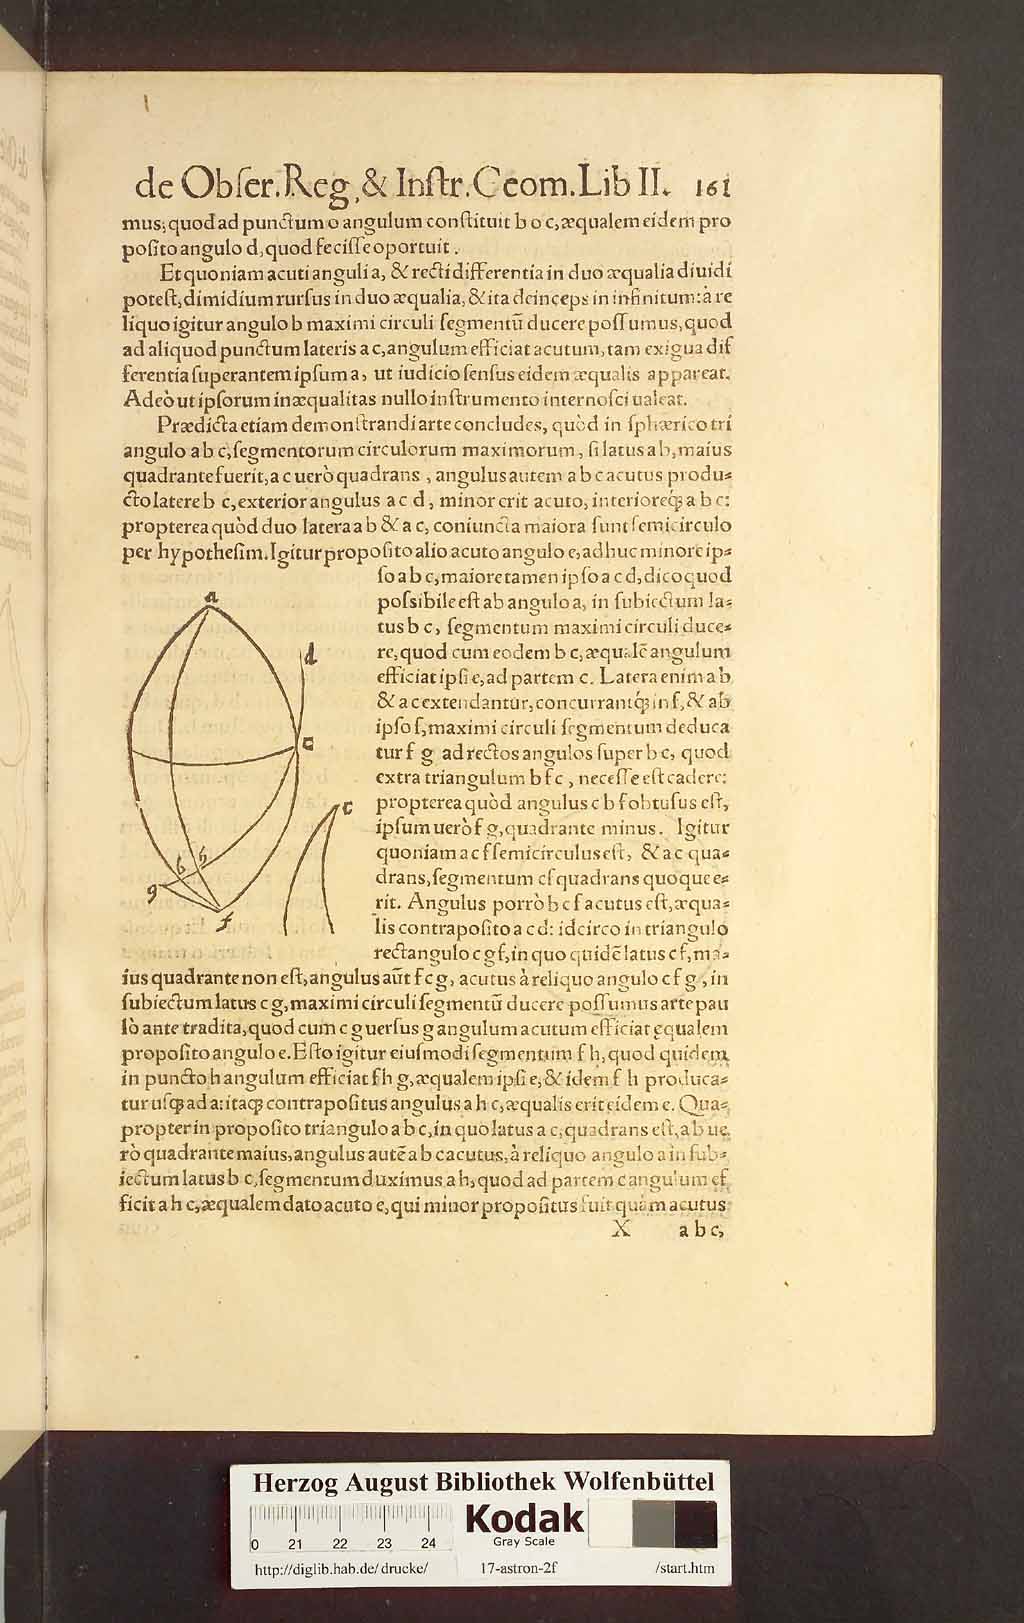 de Obſer.Reg,& Inſtr.Geom.Lib II. 161
mus; quod ad punctum o angulum conſtituit b o c, æqualem eidem pro
poſito angulo d, quod feciſſe oportuit.
Et quoniam acuti anguli a, & recti differentia in duo æqualia diuidi
poteſt, dimidium rurſus in duo æqualia, & ita deinceps in infinitum: à re
liquo igitur angulo b maximi circuli ſegmentū ducere poſſumus, quod
ad aliquod punctum lateris a c, angulum efficiat acutum, tam exigua dif
ferentia ſuperantem ipſum a, ut iudicio ſenſus eidem æqualis appareat.
Adeò ut ipſorum inæqualitas nullo inſtrumento internoſci ualeat.
Prædicta etiam demonſtrandi arte concludes, quòd in ſphærico tri
angulo a b c, ſegmentorum circulorum maximorum, ſi latus a b, maius
quadrante fuerit, a c uerò quadrans, angulus autem a b c acutus produ⸗
cto latere b c, exterior angulus a c d, minor erit acuto, interioreq́; a b c:
propterea quòd duo latera a b & a c, coniuncta maiora ſunt ſemicirculo
per hypotheſim. Igitur propoſito alio acuto angulo e, adhuc minore ip⸗
ſo a b c, maiore tamen ipſo a c d, dico quod
poſsibile eſt ab angulo a, in ſubiectum la⸗
tus b c, ſegmentum maximi circuli duce⸗
re, quod cum eodem b c, æqualē angulum
efficiat ipſi e, ad partem c. Latera enim a b
& a c extendantur, concurrantq́; in f, & ab
ipſo f, maximi circuli ſegmentum deduca
tur f g ad rectos angulos ſuper b c, quod
extra triangulum b f c, neceſſe eſt cadere:
propterea quòd angulus c b f obtuſus eſt,
ipſum uerò f g, quadrante minus. Igitur
quoniam a c f ſemicirculus eſt, & a c qua⸗
drans, ſegmentum c f quadrans quoque e⸗
rit. Angulus porrò b c f acutus eſt, æqua⸗
lis contrapoſito a c d: idcirco in triangulo
rectangulo c g f, in quo quidē latus c f, ma⸗
ius quadrante non eſt, angulus aūt f c g, acutus à reliquo angulo c f g, in
ſubiectum latus c g, maximi circuli ſegmentū ducere poſſumus arte pau
lò ante tradita, quod cum c g uerſus g angulum acutum efficiat ęqualem
propoſito angulo e. Eſto igitur eiuſmodi ſegmentum f h, quod quidem
in puncto h angulum efficiat f h g, æqualem ipſi e, & idem f h produca⸗
tur uſq; ad a: itaq; contrapoſitus angulus a h c, æqualis erit eidem e. Qua⸗
propter in propoſito triangulo a b c, in quo latus a c, quadrans eſt, a b ue
rò quadrante maius, angulus autē a b c acutus, à reliquo angulo a in ſub⸗
iectum latus b c, ſegmentum duximus a h, quod ad partem c angulum ef
ficit a h c, æqualem dato acuto e, qui minor propoſitus fuit quàm acutus
X a b c,
a
d
c
e
b h
g
f
Herzog August Bibliothek Wolfenbüttel
Kodak
Gray Scale
0 21 22 23 24
http://diglib.hab.de/drucke/ 17-astron-2f /start.htm